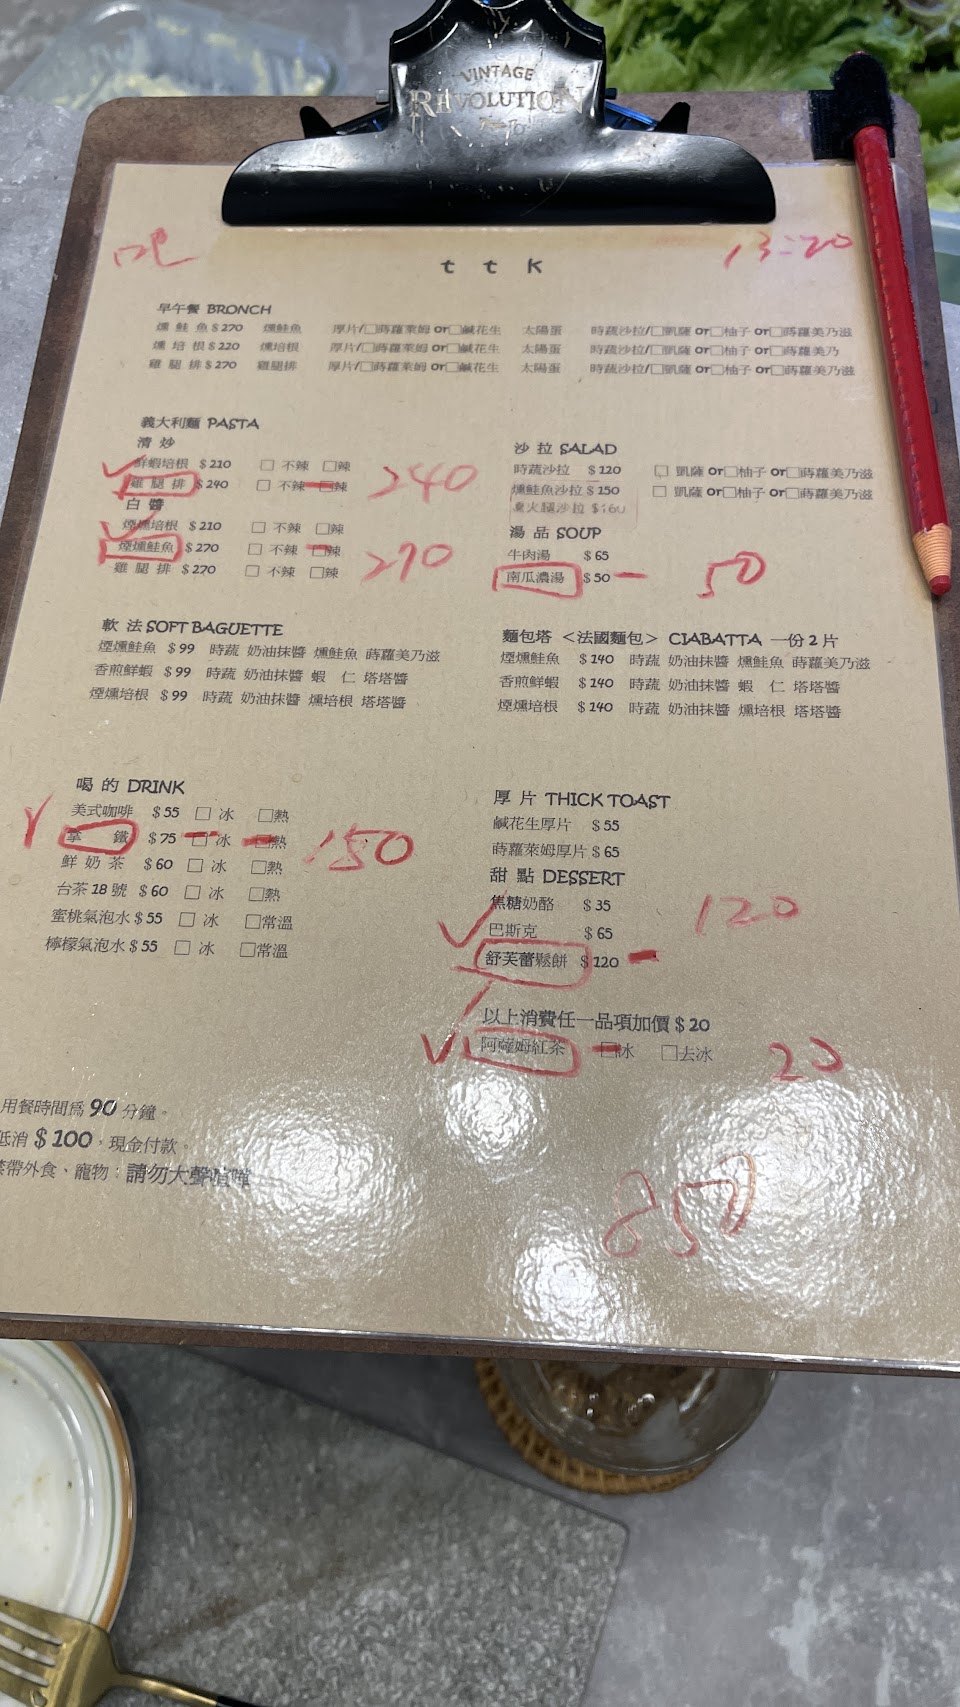 VINTAGE
REVOLUTION
吧
13:20
t t k
早午餐 BRONCH
燻 鮭 魚 $ 270 燻鮭魚 厚片/□蒔蘿萊姆 or□鹹花生 太陽蛋 時蔬沙拉/□凱薩 or□柚子 or□蒔蘿美乃滋
燻 培 根 $ 220 燻培根 厚片/□蒔蘿萊姆 or□鹹花生 太陽蛋 時蔬沙拉/□凱薩 or□柚子 or□蒔蘿美乃
雞 腿 排 $ 270 雞腿排 厚片/□蒔蘿萊姆 or□鹹花生 太陽蛋 時蔬沙拉/□凱薩 or□柚子 or□蒔蘿美乃滋
義大利麵 PASTA
清 炒
鮮蝦培根 $ 210 □ 不辣 □辣
雞 腿 排 $ 240 □ 不辣 □辣 240
白 醬
煙燻培根 $ 210 □ 不辣 □辣
煙燻鮭魚 $ 270 □ 不辣 □辣 270
雞 腿 排 $ 270 □ 不辣 □辣
沙 拉 SALAD
時蔬沙拉 $ 120 □ 凱薩 or□柚子 or□蒔蘿美乃滋
燻鮭魚沙拉 $ 150 □ 凱薩 or□柚子 or□蒔蘿美乃滋
火腿沙拉 $160
湯 品 SOUP
牛肉湯 $ 65
南瓜濃湯 $ 50 50
軟 法 SOFT BAGUETTE
煙燻鮭魚 $ 99 時蔬 奶油抹醬 燻鮭魚 蒔蘿美乃滋
香煎鮮蝦 $ 99 時蔬 奶油抹醬 蝦 仁 塔塔醬
煙燻培根 $ 99 時蔬 奶油抹醬 燻培根 塔塔醬
麵包塔 <法國麵包> CIABATTA 一份 2 片
煙燻鮭魚 $ 140 時蔬 奶油抹醬 燻鮭魚 蒔蘿美乃滋
香煎鮮蝦 $ 140 時蔬 奶油抹醬 蝦 仁 塔塔醬
煙燻培根 $ 140 時蔬 奶油抹醬 燻培根 塔塔醬
喝 的 DRINK
美式咖啡 $ 55 □ 冰 □熱
拿 鐵 $ 75 □ 冰 □熱 150
鮮 奶 茶 $ 60 □ 冰 □熱
台茶 18 號 $ 60 □ 冰 □熱
蜜桃氣泡水 $ 55 □ 冰 □常溫
檸檬氣泡水 $ 55 □ 冰 □常溫
厚 片 THICK TOAST
鹹花生厚片 $ 55
蒔蘿萊姆厚片 $ 65
甜 點 DESSERT
焦糖奶酪 $ 35
巴斯克 $ 65
舒芙蕾鬆餅 $ 120 120
以上消費任一品項加價 $ 20
阿薩姆紅茶 □冰 □去冰 20
用餐時間為 90 分鐘。
低消 $ 100,現金付款。
禁帶外食、寵物;請勿大聲喧嘩
850